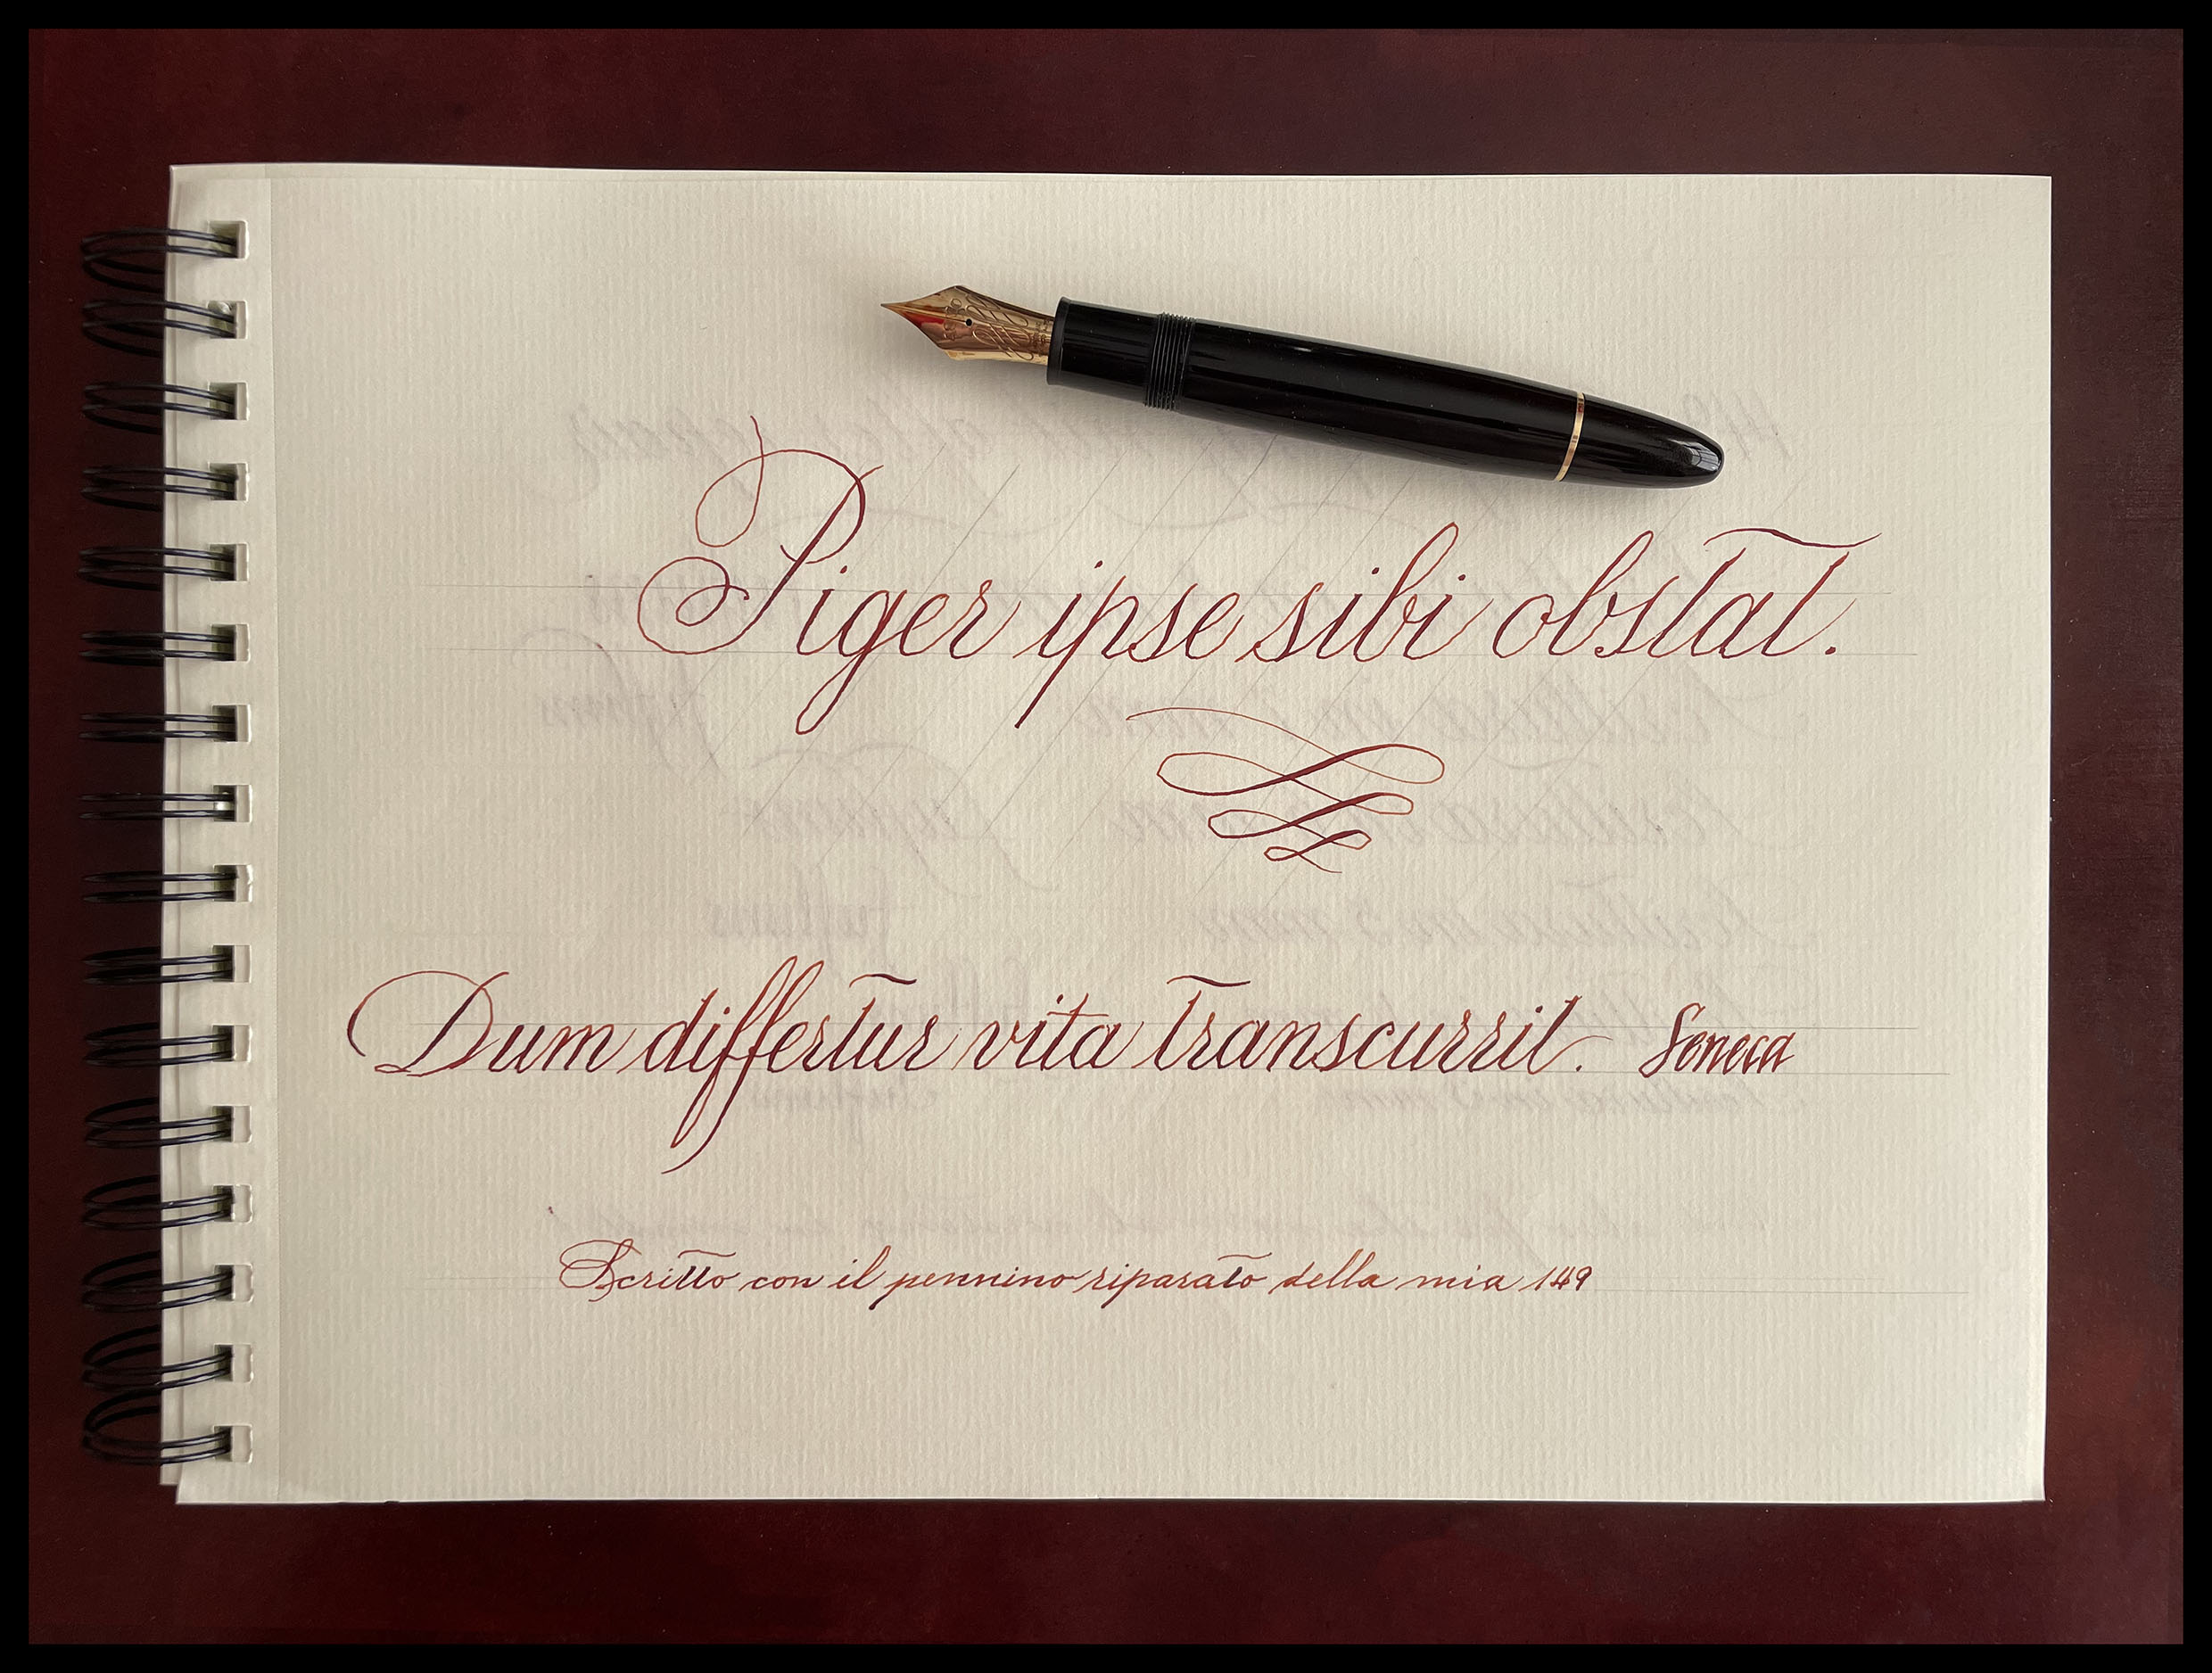 Piger ipse sibi obstat.
Dum differtur vita transcurrit. Seneca
Scritto con il pennino riparato della mia 149